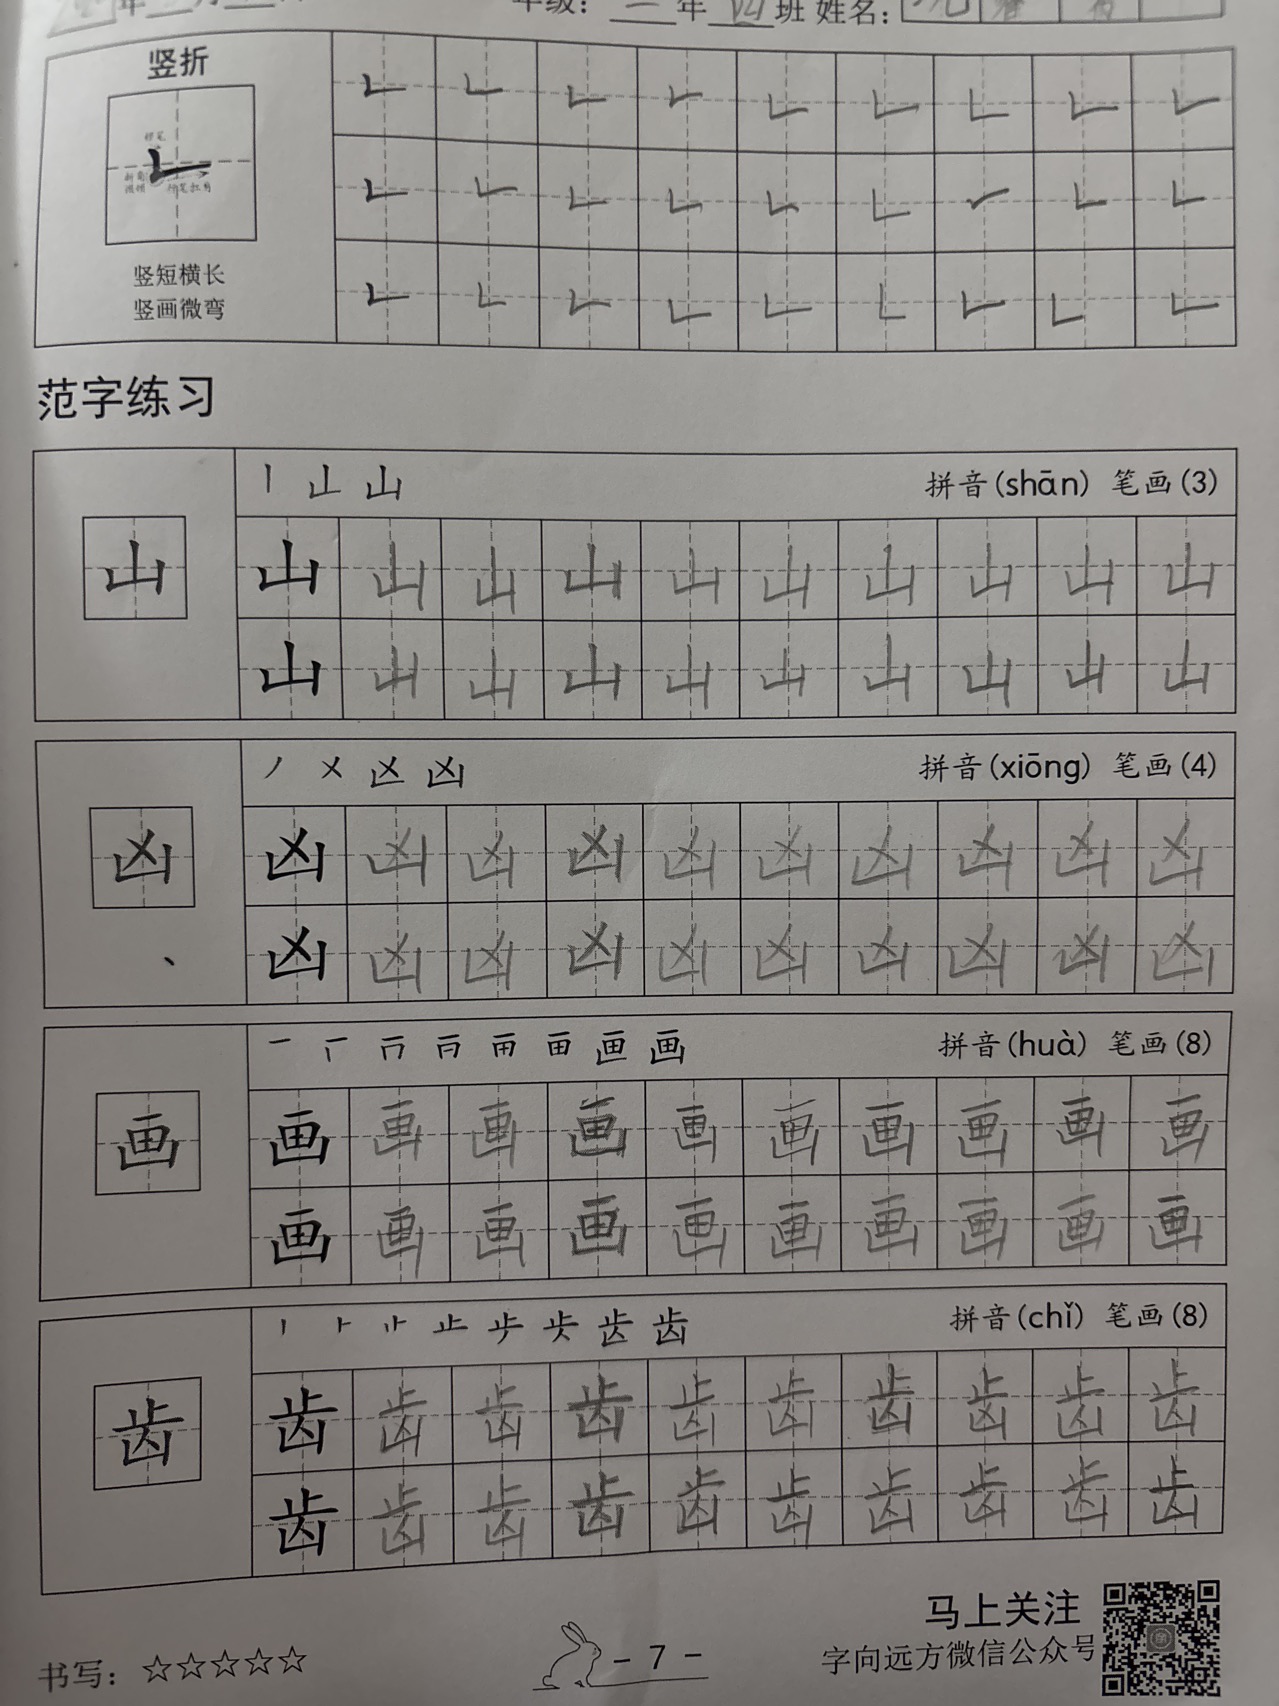 年 月
年级：二年四班 姓名：
竖折
𠃊 𠃊 𠃊 𠃊 𠃊 𠃊 𠃊 𠃊 𠃊
𠃊 𠃊 𠃊 𠃊 𠃊 𠃊 𠃊 𠃊 𠃊
𠃊 𠃊 𠃊 𠃊 𠃊 𠃊 𠃊 𠃊 𠃊
竖短横长
竖画微弯
范字练习
山 拼音(shān) 笔画(3)
山
山 山 山 山 山 山 山 山 山 山
山 山 山 山 山 山 山 山 山 山
凶 拼音(xiōng) 笔画(4)
凶
凶 凶 凶 凶 凶 凶 凶 凶 凶 凶
凶 凶 凶 凶 凶 凶 凶 凶 凶 凶
画 拼音(huà) 笔画(8)
画
画 画 画 画 画 画 画 画 画 画
画 画 画 画 画 画 画 画 画 画
齿 拼音(chǐ) 笔画(8)
齿
齿 齿 齿 齿 齿 齿 齿 齿 齿 齿
齿 齿 齿 齿 齿 齿 齿 齿 齿 齿
马上关注
字向远方微信公众号
书写：☆☆☆☆☆
- 7 -